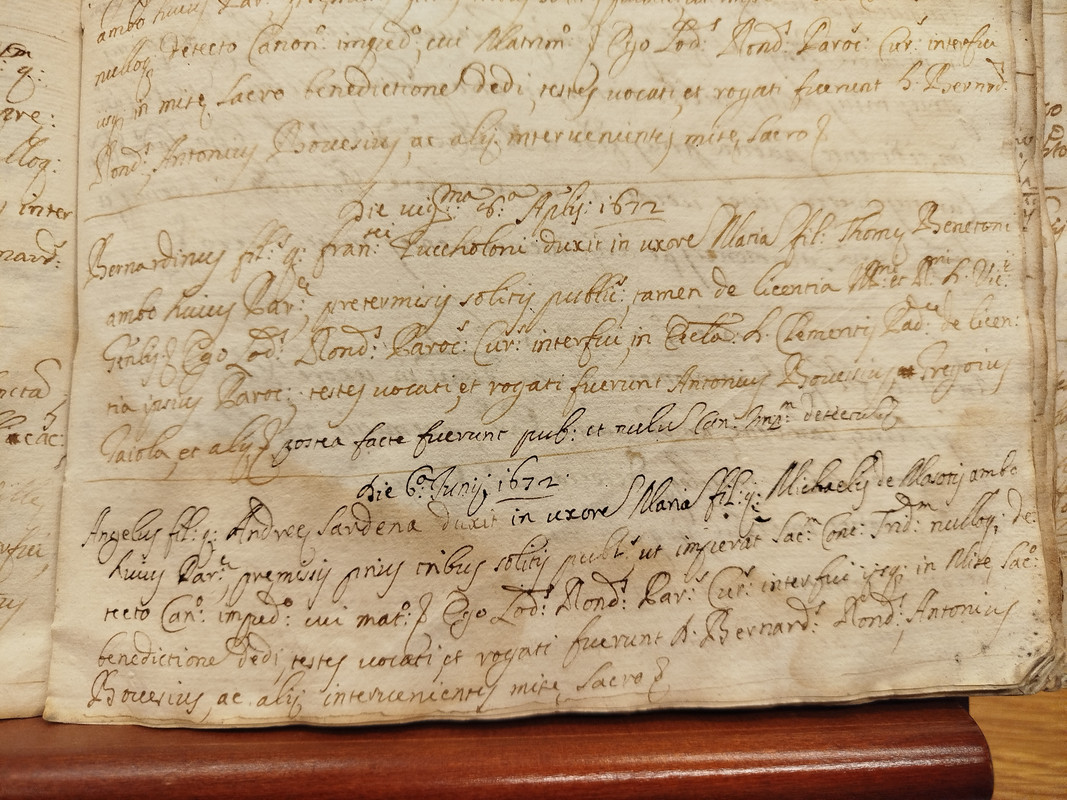 ambo huius Par:
nulloq detecto Canon: imped:o cui Matrim:o Ego Lod:s Rond:s Paroc: Cur:s interfui
usq in misse sacro benedictione dedi, testes uocati, et rogati fuerunt h. Bernard:
Rond:s Antonius Bouesius, ac alij interuenientes misse, sacro
Die uig:ma 6:a Aplis: 1672
Bernardinus fil:s q: fran:sci Zuccholoni duxit in uxore Maria fil: Thome Benetoni
ambo huius Par:e, pretermisis solitis public: tamen de licentia Ill:mi et R:mi h. Vic:
Gnlis Ego Lod:s Rond:s Paroc: Cur:s interfui, in Eccla: h. Clementis Pad:ei de licen:
tia ipsius Paroc: testes uocati, et rogati fuerunt Antonius Bouesius Gregoius
Gaiola, et alij postea facte fuerunt pub: et nulu Can: Imp:m detectu
Die 6:a Junij, 1672
Angelus fil:s q: Andree Sardena duxit in uxore Maria fil: q: Michaelis de Masotis ambo
huius Par:e, premissis prius tribus solitis publ:s ut imperat Sac:m Conc: Trid:m nulloq; de:
tecto Can:o imped:o cui mat:o Ego Lod:s Rond:s Par:s Cur:s interfui usq; in Misse Sac:
benedictione dedi, testes uocati, et rogati fuerunt h. Bernard:s Rond:s Antonius
Bouesius, ac alij interuenientes misse, sacro